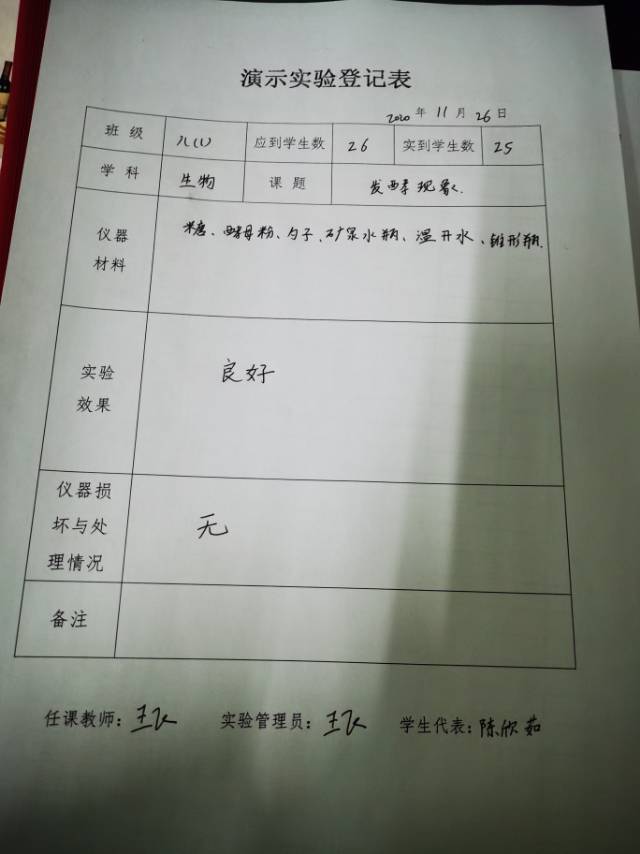 演示实验登记表
2020 年 11 月 26 日
班 级 八(1) 应到学生数 26 实到学生数 25
学 科 生物 课 题 发酵现象.
仪器
材料
糖、酵母粉、勺子、矿泉水瓶、温开水、锥形瓶.
实验
效果
良好
仪器损
坏与处
理情况
无
备注
任课教师: 王飞 实验管理员: 王飞 学生代表: 陈欣茹